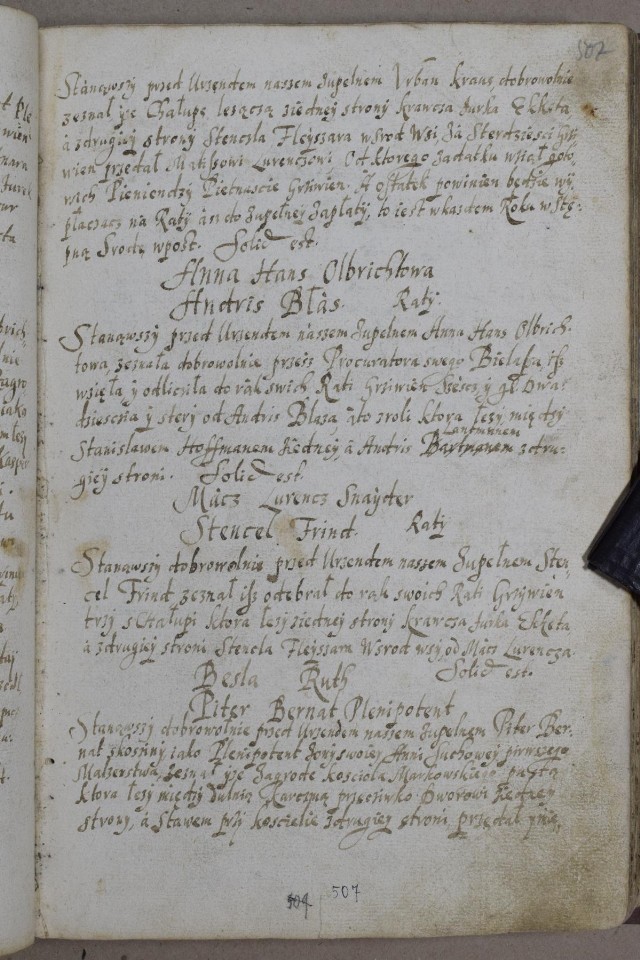 507
Stanąwszy przed Urzendem naszem zupełnem Vrban kraus, dobrowolnie
zeznał yże Chałupę leszączą ziedney strony krawcza Jurka Ekkęta
a zdrugiey strony Stencla Fleyszara wsrod Wsi, Za Sterdziesci grzy
wien przedał Matissowi Lurenczowi Od ktorego zadatku wziął goto,
wich Pieniendzy Pietnascie Grziwien. A ostatek powinien będzie wy,
płaczacz na Raty asz do zupełney Zapłaty, to iest wkazdem Roku wStę,
pną Srodę wpost. Solid est.
Anna Hans Olbrichtowa
Andris Błas. Raty.
Stanąwszy przed Urzendem naszem zupełnem Anna Hans Olbrich,
towa zeznała dobrowolnie przesz Procuratora swego Bielasa isz
wzięła y odliczila do rąk swich Rati Grziwień Szescz y gl Dwa,
dziescia y stery od Andris Blaza ato zroli ktora leży między
Stanisławem Hoffmanem ziedney, a Andris Bartmanem zdru,
Lantmanem
giey stroni. Solid est.
Mącz Lurencz Snayder
Stencel Frind. Raty
Stanąwszy dobrowolnie przed Urzendem naszem Zupełnem Sten,
cel Frind zeznał isz odebrał do rąk swoich Rati Grzywien
trzy s Chałupi ktora leży ziedney strony krawcza Jurka Ekketa
a zdrugiey stroni Stencla Fleyszara Wsrod wsy, od Mącz Lurencza.
Solid est.
Besla Ruth
Piter Bernat Plenipotent
Stanąwszy dobrowolnie przed Urzendem naszem Zupełnem Piter Ber,
nat skosziny iako Plenipotent żony swoiey Anni Suchowey pirwszego
Malzerstwa, zeznał yże Zagrodę kosciola Markowskiego pustą
ktora leży między Karczmą przeciwko Dworowi ziedney
strony, a Stawem przy koscielie zdrugiey stroni przedał ynię,
504 507